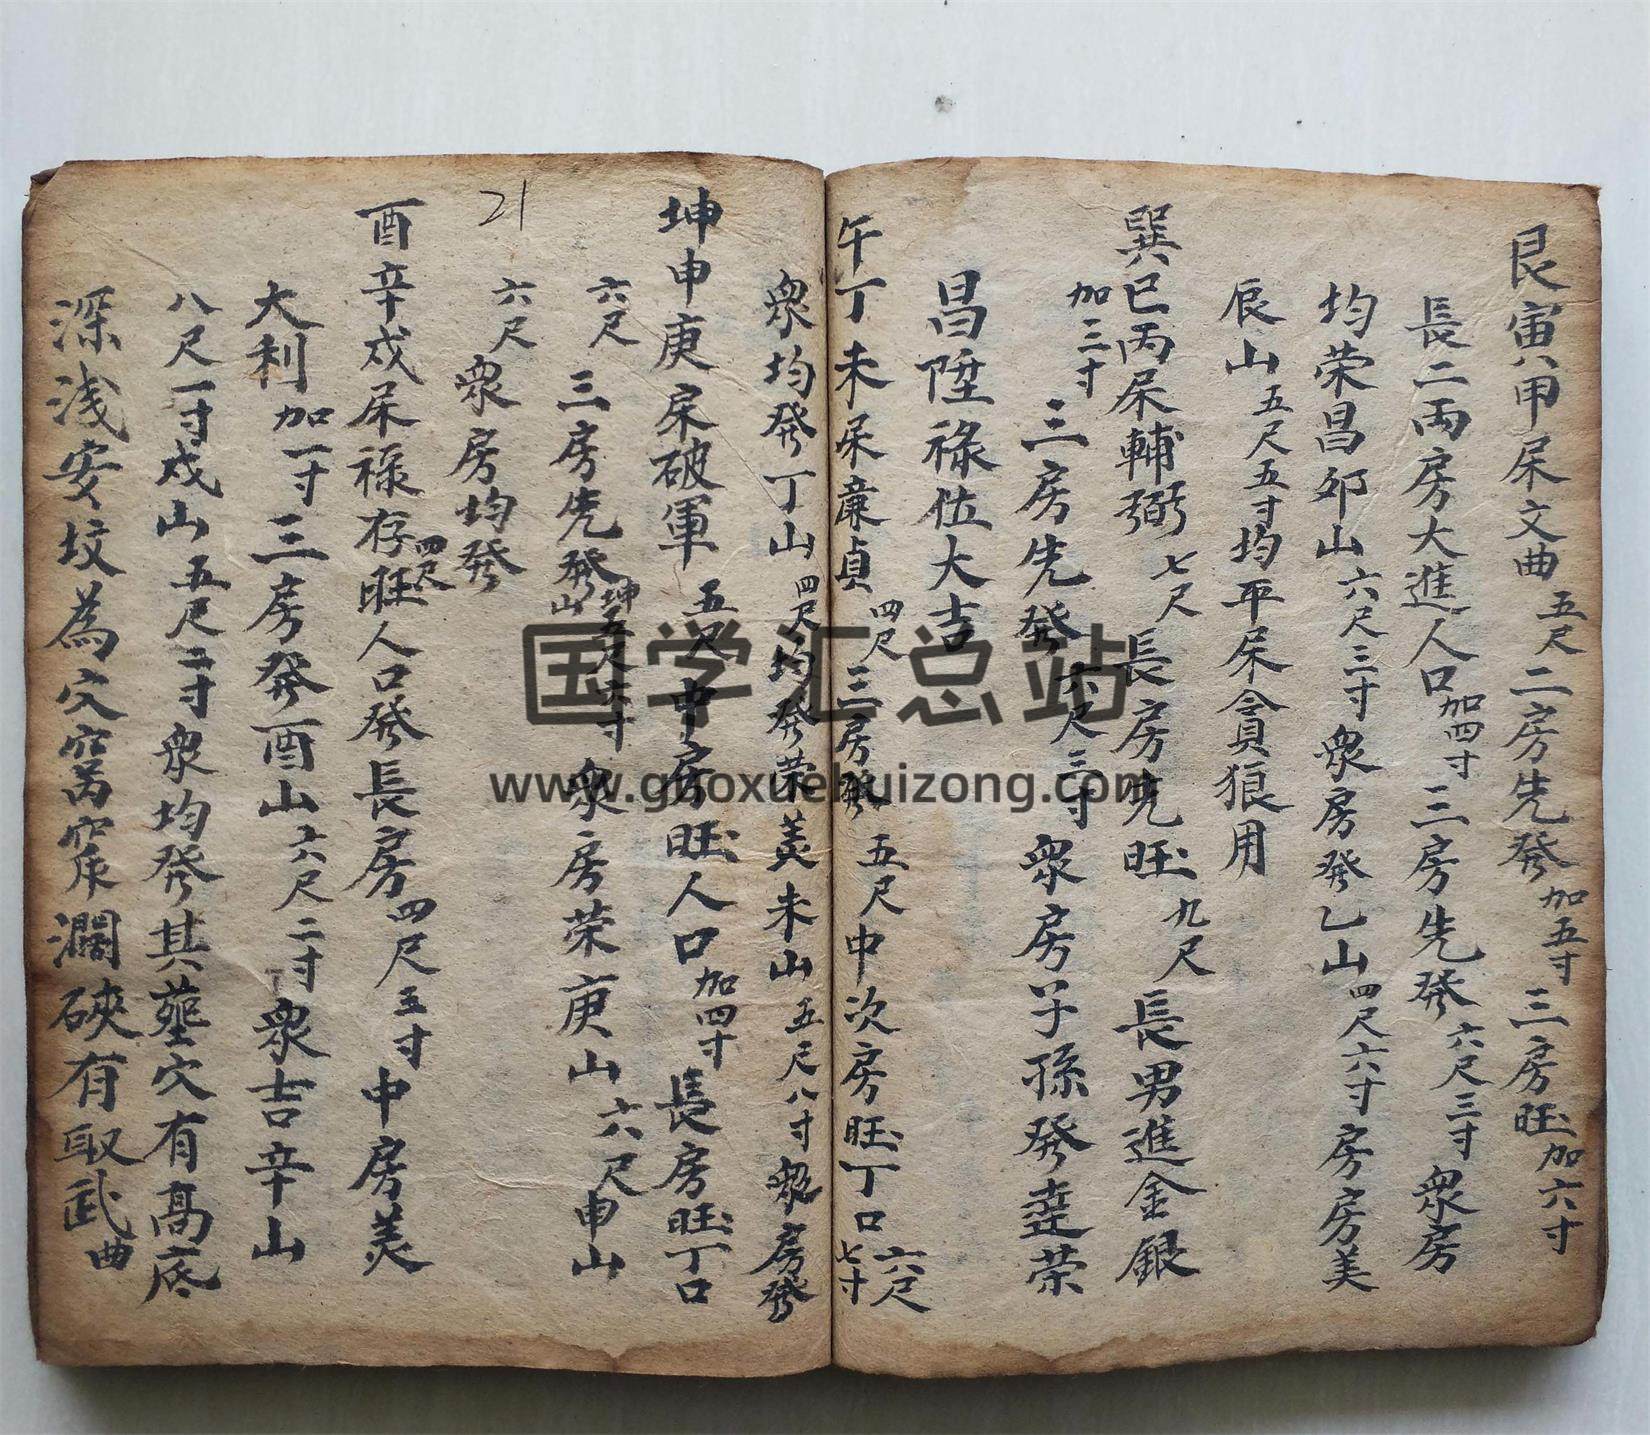 艮寅甲屎文曲五尺二房先發加五寸三房旺加六寸
長二両房大進人口加四寸三房先發六尺三寸衆房
均荣昌夘山六尺三寸衆房發乙山四尺六寸房房美
辰山五尺五寸均平屎貪狼用
巽巳丙屎輔弼七尺長房先旺九尺長男進金銀
加三寸三房先發六尺三寸衆房子孫發達荣
昌陞祿位大吉
午丁未屎廉貞四尺三房發五尺中次房旺丁口六尺七寸
衆均發丁山四尺均發荣美未山五尺八寸衆房發
坤申庚屎破軍五尺中房旺人口加四寸長房旺丁口
六尺三房先發坤山五尺六寸衆房荣庚山六尺申山
六尺衆房均發
21
酉辛戍屎禄存四尺旺人口發長房四尺五寸中房美
大利加一寸三房發酉山六尺二寸衆吉辛山
八尺一寸戍山五尺二寸衆均發其塟穴有髙底
深浅安坟為穴窩窄濶硤有取武曲
国学汇总站
www.guoxuehuizong.com